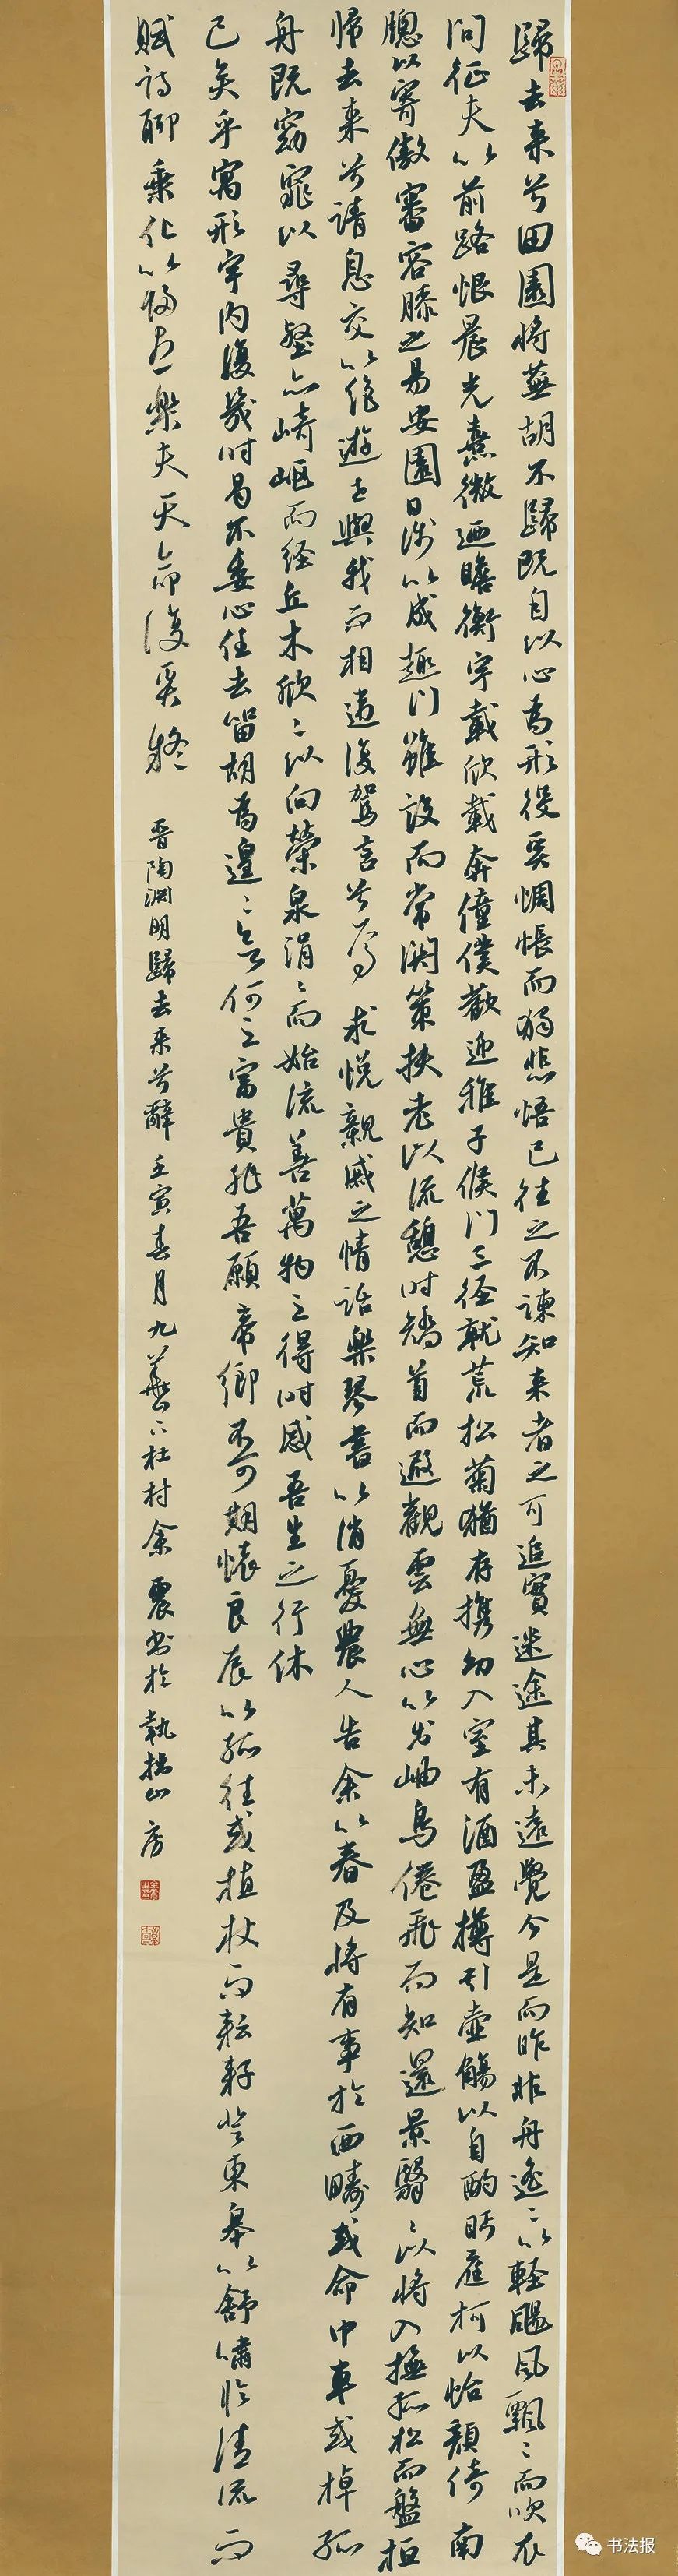 歸去来兮田園将蕪胡不歸既自以心為形役奚惆悵而獨悲悟已往之不諫知来者之可追實迷途其未遠覺今是而昨非舟遙〻以輕颺風飄〻而吹衣
问征夫以前路恨晨光熹微廼瞻衡宇載欣載奔僮僕歡迎稚子候门三径就荒松菊猶存攜幼入室有酒盈樽引壺觴以自酌眄庭柯以怡顏倚南
牕以寄傲審容膝之易安園日涉以成趣门雖設而常関策扶老以流憩时矯首而遐觀雲無心以出岫鳥倦飛而知還景翳〻以将入撫孤松而盤桓
歸去来兮请息交以絕遊世與我而相違復駕言兮焉求悦親戚之情话樂琴書以消憂農人告余以春及将有事於西疇或命巾車或棹孤
舟既窈窕以尋壑亦崎岖而经丘木欣〻以向榮泉涓〻而始流善萬物之得时感吾生之行休
已矣乎寓形宇内復幾时曷不委心任去留胡為遑〻欲何之富貴非吾願帝鄉不可期懷良辰以孤往或植杖而耘耔登東皋以舒嘯临清流而
賦诗聊乘化以歸盡樂夫天命復奚疑
晋陶淵明歸去来兮辭壬寅春月九華山下杜村余震书於執拙山房
书法报